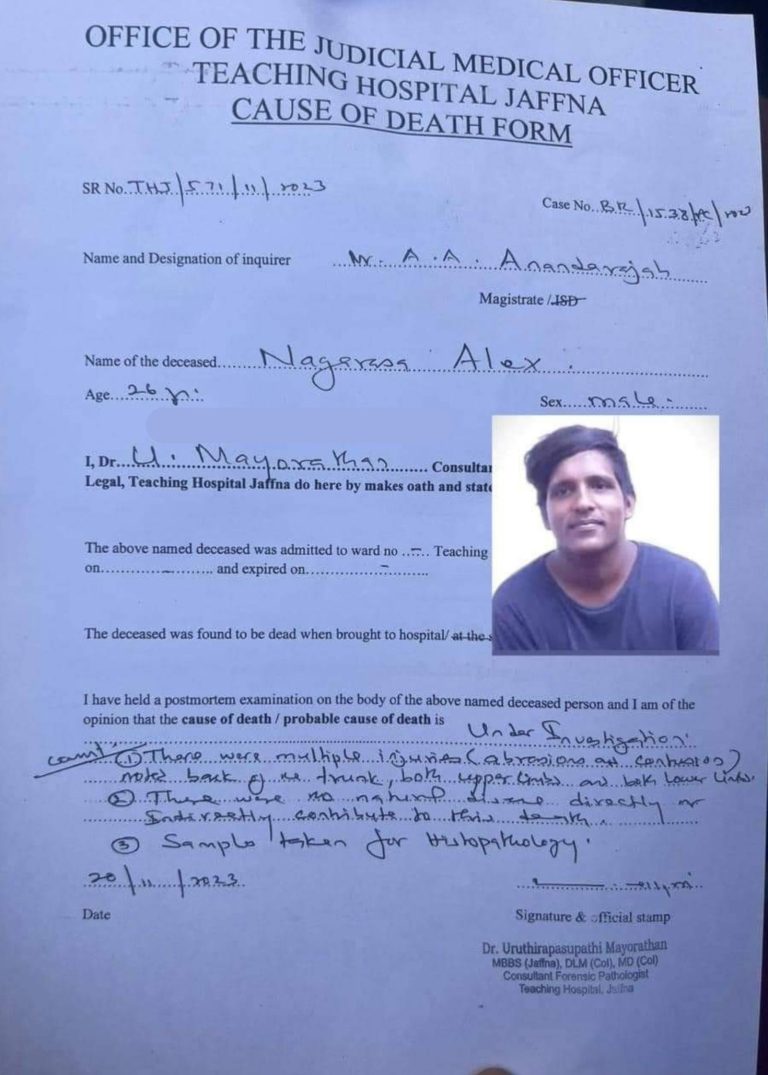 OFFICE OF THE JUDICIAL MEDICAL OFFICER
TEACHING HOSPITAL JAFFNA
CAUSE OF DEATH FORM
SR No. THJ/571/11/2023
Case No. BR/1538/PC/
Name and Designation of inquirer Mr. A.A. Anandarajah
Magistrate /JSD
Name of the deceased Nagarasa Alex.
Age 26 yrs.
Sex male.
I, Dr. U. Mayorathan Consulta
Legal, Teaching Hospital Jaffna do here by makes oath and stat
The above named deceased was admitted to ward no .. – .. Teaching
on – and expired on –
The deceased was found to be dead when brought to hospital/ at the
I have held a postmortem examination on the body of the above named deceased person and I am of the
opinion that the cause of death / probable cause of death is Under Investigation.
① There were multiple injuries (abrasions and contusions)
noted back of the trunk, both upper limbs and both lower limbs.
② There were no natural disease directly or
Indirectly contribute to this death.
③ Sample taken for Histopathology.
20/11/2023
Date
Signature & official stamp
Dr. Uruthirapasupathi Mayorathan
MBBS (Jaffna), DLM (Col), MD (Col)
Consultant Forensic Pathologist
Teaching Hospital, Jaffna